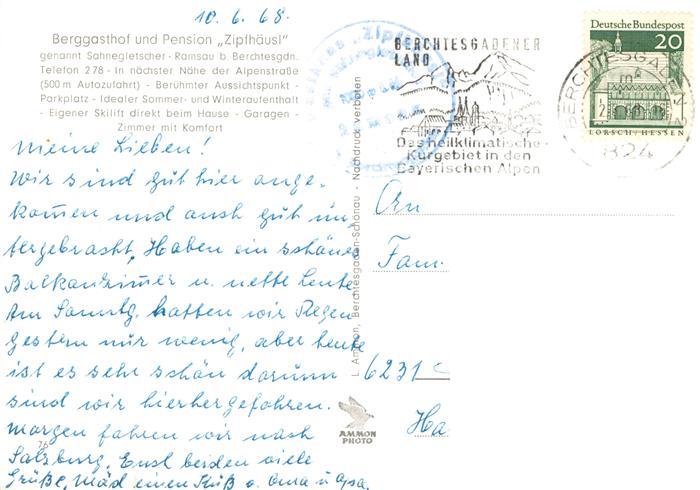 10.6.68.
Berggasthof und Pension „Zipfhäusl"
genannt Sahnegletscher - Ramsau b. Berchtesgdn.
Telefon 278 - In nächster Nähe der Alpenstraße
(500 m Autozufahrt) - Berühmter Aussichtspunkt -
Parkplatz - Idealer Sommer- und Winteraufenthalt
- Eigener Skilift direkt beim Hause - Garagen -
Zimmer mit Komfort
Meine Lieben!
Wir sind gut hier ange-
komen und auch gut un
tergebracht, Haben ein schönes
Balkonzimer u. nette Leute
Am Samstg. hatten wir Regen
gestern nur wenig, aber heute
ist es sehr schön darum
sind wir hierhergefahren.
Morgen fahren wir nach
Salzburg. Euch beiden viele
Grüße, Mäd einen Kuß v. Oma u Opa.
76
L. Ammon, Berchtesgaden-Schönau - Nachdruck verboten
AMMON
PHOTO
BERCHTESGADENER
LAND
Das heilklimatische
Kurgebiet in den
Bayerischen Alpen
Deutsche Bundespost
20
LORSCH/HESSEN
BERCHTESGADEN
824
An
Fam.
6231
Ha